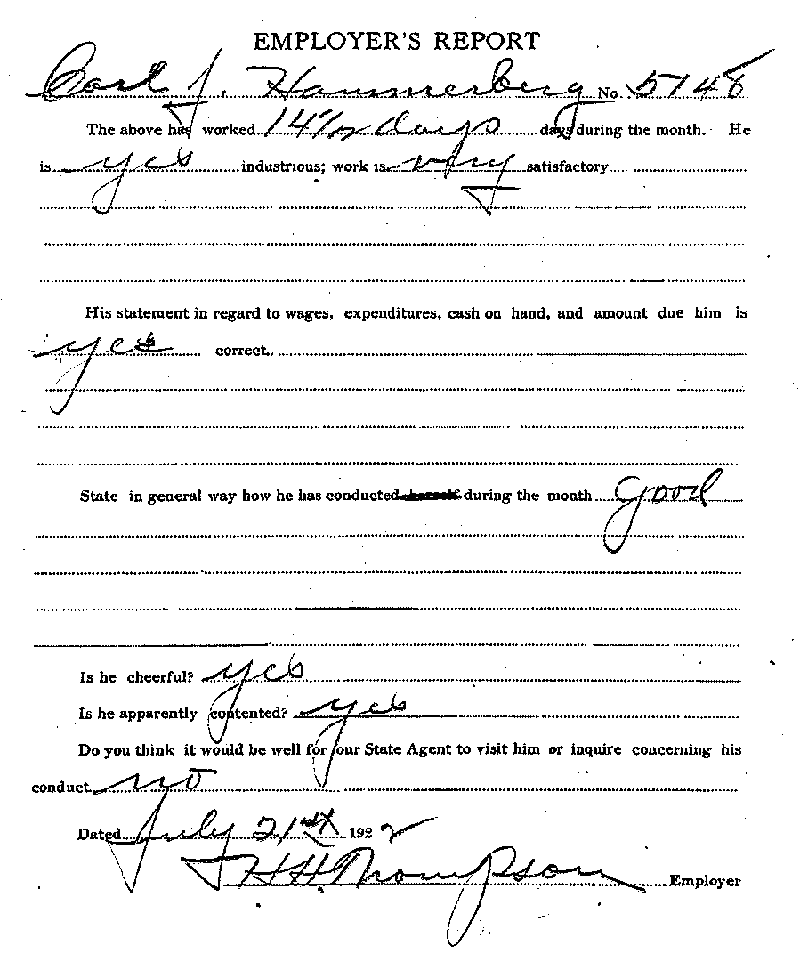 EMPLOYER'S REPORT
Carl J. Hammerberg No. 5748
The above has worked 14 1/2 days days during the month. He
is yes industrious; work is very satisfactory
His statement in regard to wages, expenditures, cash on hand, and amount due him is
yes correct.
State in general way how he has conducted during the month good
Is he cheerful? yes
Is he apparently contented? yes
Do you think it would be well for our State Agent to visit him or inquire concerning his
conduct no
Dated July 21st 1922
H H Thompson Employer